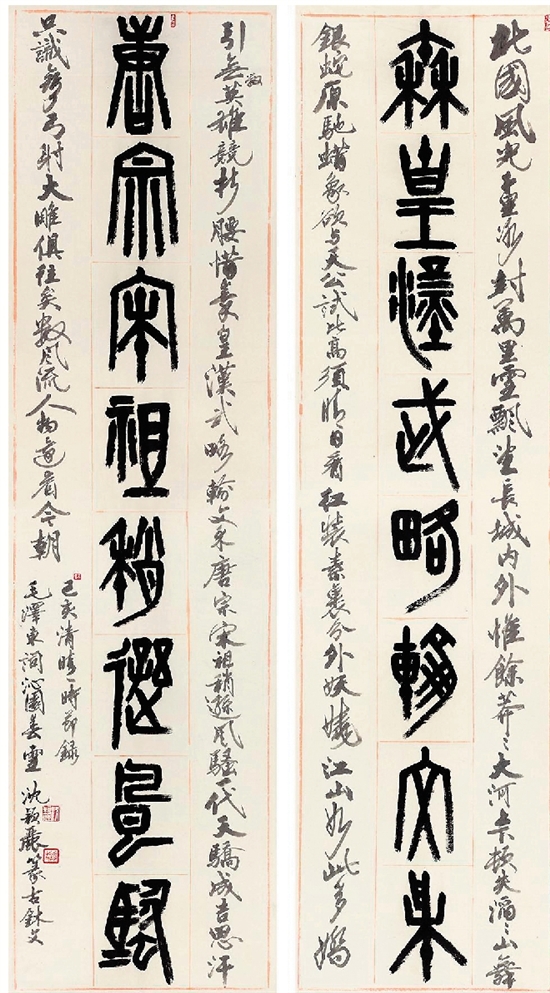 北國風光千里冰封萬里雪飄望長城內外惟餘莽〻大河上下頓失滔〻山舞
秦皇漢武略輸文采
銀蛇原馳蜡象欲与天公試比高須晴日看紅裝素裹分外妖嬈江山如此多嬌
引無數英雄競折腰惜秦皇漢武略輸文采唐宗宋祖稍遜風騷一代天驕成吉思汗
唐宗宋祖稍遜風騷
只識彎弓射大雕俱往矣數風流人物還看今朝
己亥清明時節錄
毛澤東詞沁園春雪 沈穎麗篆古鉨文